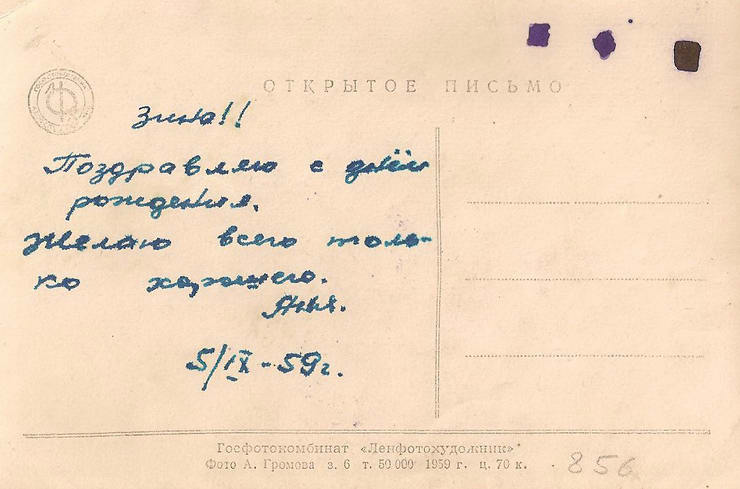 ОТКРЫТОЕ ПИСЬМО
Зина!!
Поздравляю с днём
рождения.
Желаю всего толь-
ко хорошего.
Аня.
5/IX-59г.
Госфотокомбинат «Ленфотохудожник»
Фото А. Громова з. 6 т. 50 000 1959 г. ц. 70 к.
856